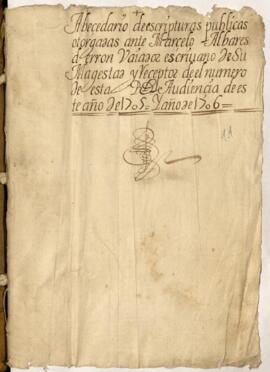 Abecedario de escripturas publicas
otorgadas ante Marcelo Albares
escriuano de Su
Magestad y receptor del numero
de esta Rl Audiencia de es
te año de 1705 Y año de 1706